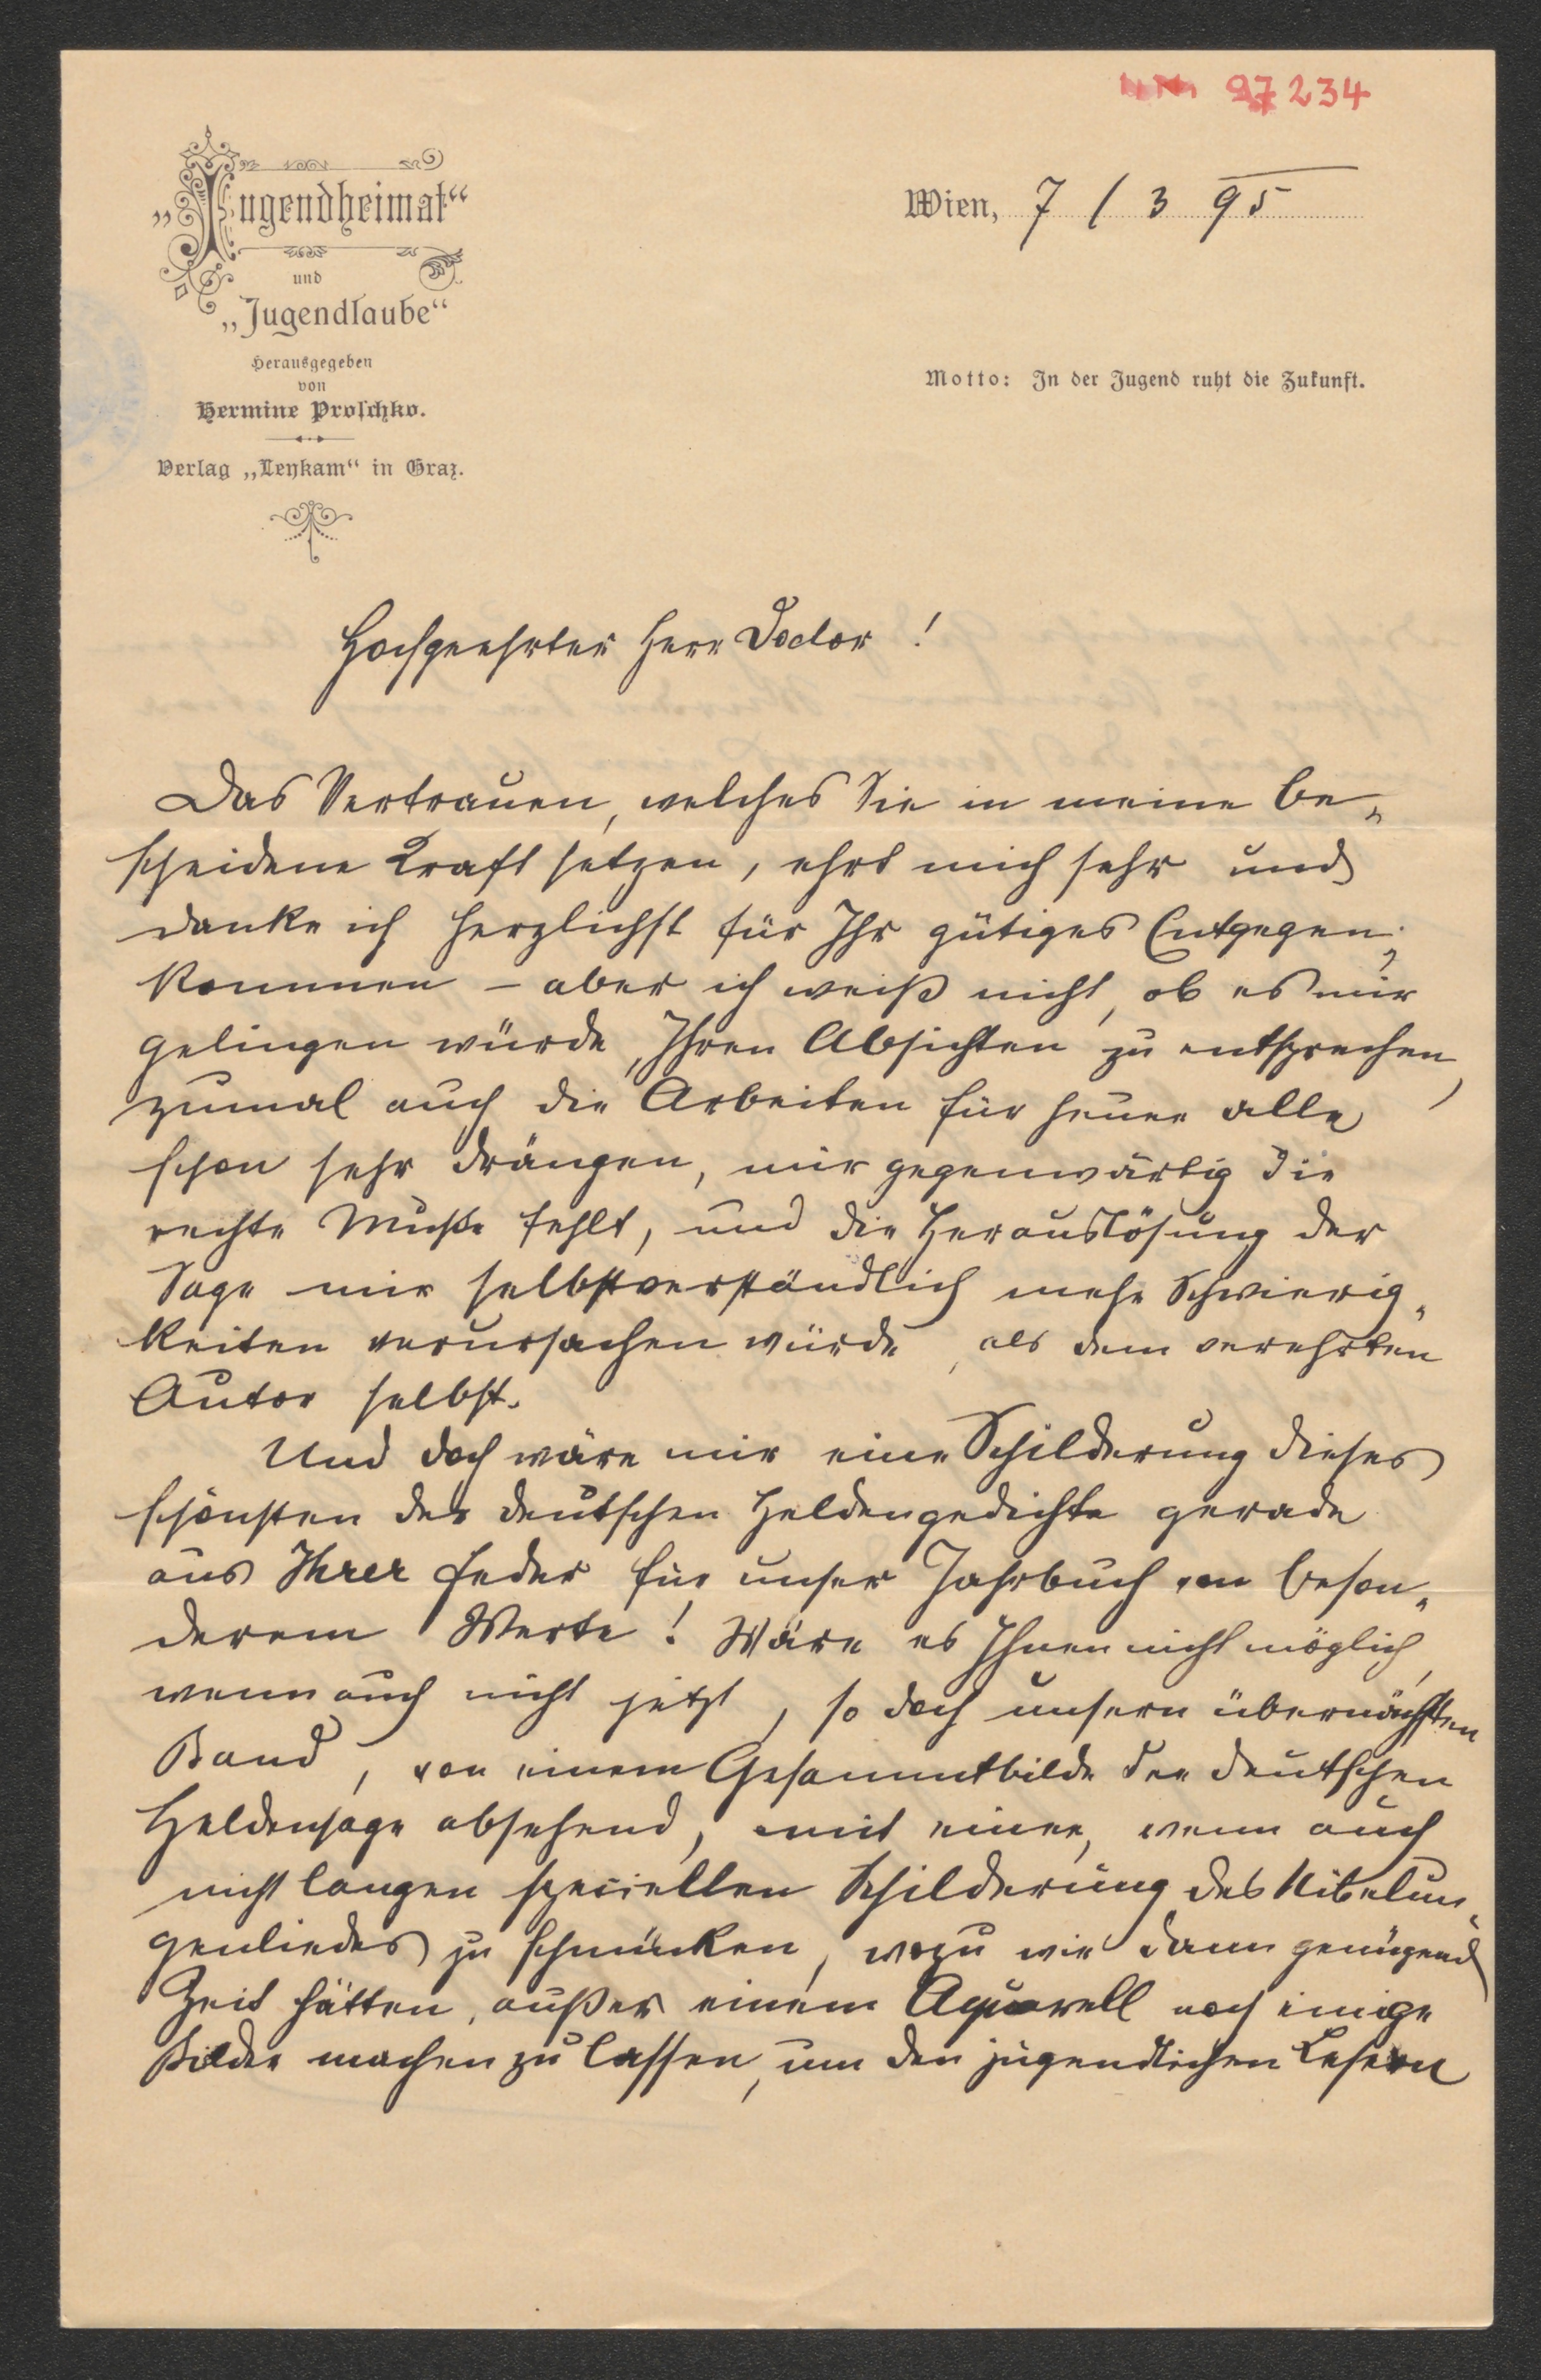 97234
„Jugendheimat“
und
„Jugendlaube“
Herausgegeben
von
Hermine Proschko.
Verlag „Leykam“ in Graz.
Wien, 7 / 3 95
Motto: In der Jugend ruht die Zukunft.
Hochgeehrter Herr Doctor !
Das Vertrauen, welches Sie in meine be„
scheidene Kraft setzen, ehrt mich sehr und
danke ich herzlichst für Ihr gütiges Entgegen„
kommen – aber ich weiß nicht, ob es mir
gelingen würde, Ihren Absichten zu entsprechen,
zumal auch die Arbeiten für heuer alle
schon sehr drängen, mir gegenwärtig die
rechte Muße fehlt, und die Herauslösung der
Sage mir selbstverständlich mehr Schwierig„
keiten verursachen würde, als dem verehrten
Autor selbst.
Und doch wäre mir eine Schilderung dieses
schönsten der deutschen Heldengedichte gerade
aus Ihrer Feder für unser Jahrbuch von beson„
derem Werte ! Wäre es Ihnen nicht möglich,
wenn auch nicht jetzt, so doch unsern übernächsten
Band, von einem Gesammtbilde der deutschen
Heldensage absehend, mit einer, wenn auch
nicht langen speciellen Schilderung des Nibelun„
genliedes zu schmücken, wozu wir dann genügend
Zeit hätten, außer einem Aquarell noch einige
Bilder machen zu lassen, um den jugendlichen Lesern